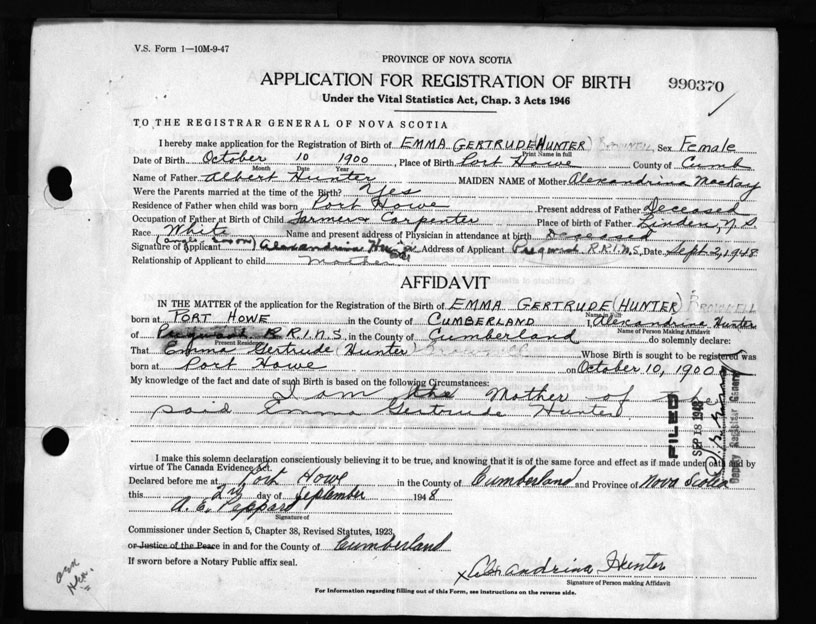 V.S. Form 1—10M-9-47
PROVINCE OF NOVA SCOTIA
APPLICATION FOR REGISTRATION OF BIRTH
990370
Under the Vital Statistics Act, Chap. 3 Acts 1946
TO THE REGISTRAR GENERAL OF NOVA SCOTIA
I hereby make application for the Registration of Birth of EMMA GERTRUDE (HUNTER) BROWNELL Sex Female
Print Name in full
Date of Birth October 10 1900, Place of Birth Port Howe County of Cumb
Month Date Year
Name of Father Albert Hunter MAIDEN NAME of Mother Alexandrina Mackay
Were the Parents married at the time of the Birth? Yes
Residence of Father when child was born Port Howe Present address of Father Deceased
Occupation of Father at Birth of Child Farmer & Carpenter Place of birth of Father Linden, N.S
Race White Name and present address of Physician in attendance at birth Deceased
(Anglo Saxon)
Signature of Applicant Alexandrina Hunter Address of Applicant Pugwash R.R.1 N.S, Date Sept. 2, 1948
Relationship of Applicant to child Mother
AFFIDAVIT
IN THE MATTER of the application for the Registration of the Birth of EMMA GERTRUDE (HUNTER) BROWNELL
Name in full
born at PORT HOWE in the County of CUMBERLAND I, Alexandrina Hunter
Name of Person Making Affidavit
of Pugwash R.R.1 N.S. in the County of Cumberland do solemnly declare:
Present Residence
That Emma Gertrude (Hunter) Brownell Whose Birth is sought to be registered was
born at Port Howe on October 10, 1900
My knowledge of the fact and date of such Birth is based on the following Circumstances:
I am the Mother of the
said Emma Gertrude Hunter
FILED
SEP 18 1948
Deputy Registrar General
I make this solemn declaration conscientiously believing it to be true, and knowing that it is of the same force and effect as if made under oath and by
virtue of The Canada Evidence Act.
Declared before me at Port Howe in the County of Cumberland and Province of Nova Scotia
this 2nd day of September 1948
A. E. Peppard
Signature of
Commissioner under Section 5, Chapter 38, Revised Statutes, 1923,
or Justice of the Peace in and for the County of Cumberland
If sworn before a Notary Public affix seal.
x Alexandrina Hunter
Signature of Person making Affidavit
For Information regarding filling out of this Form, see instructions on the reverse side.